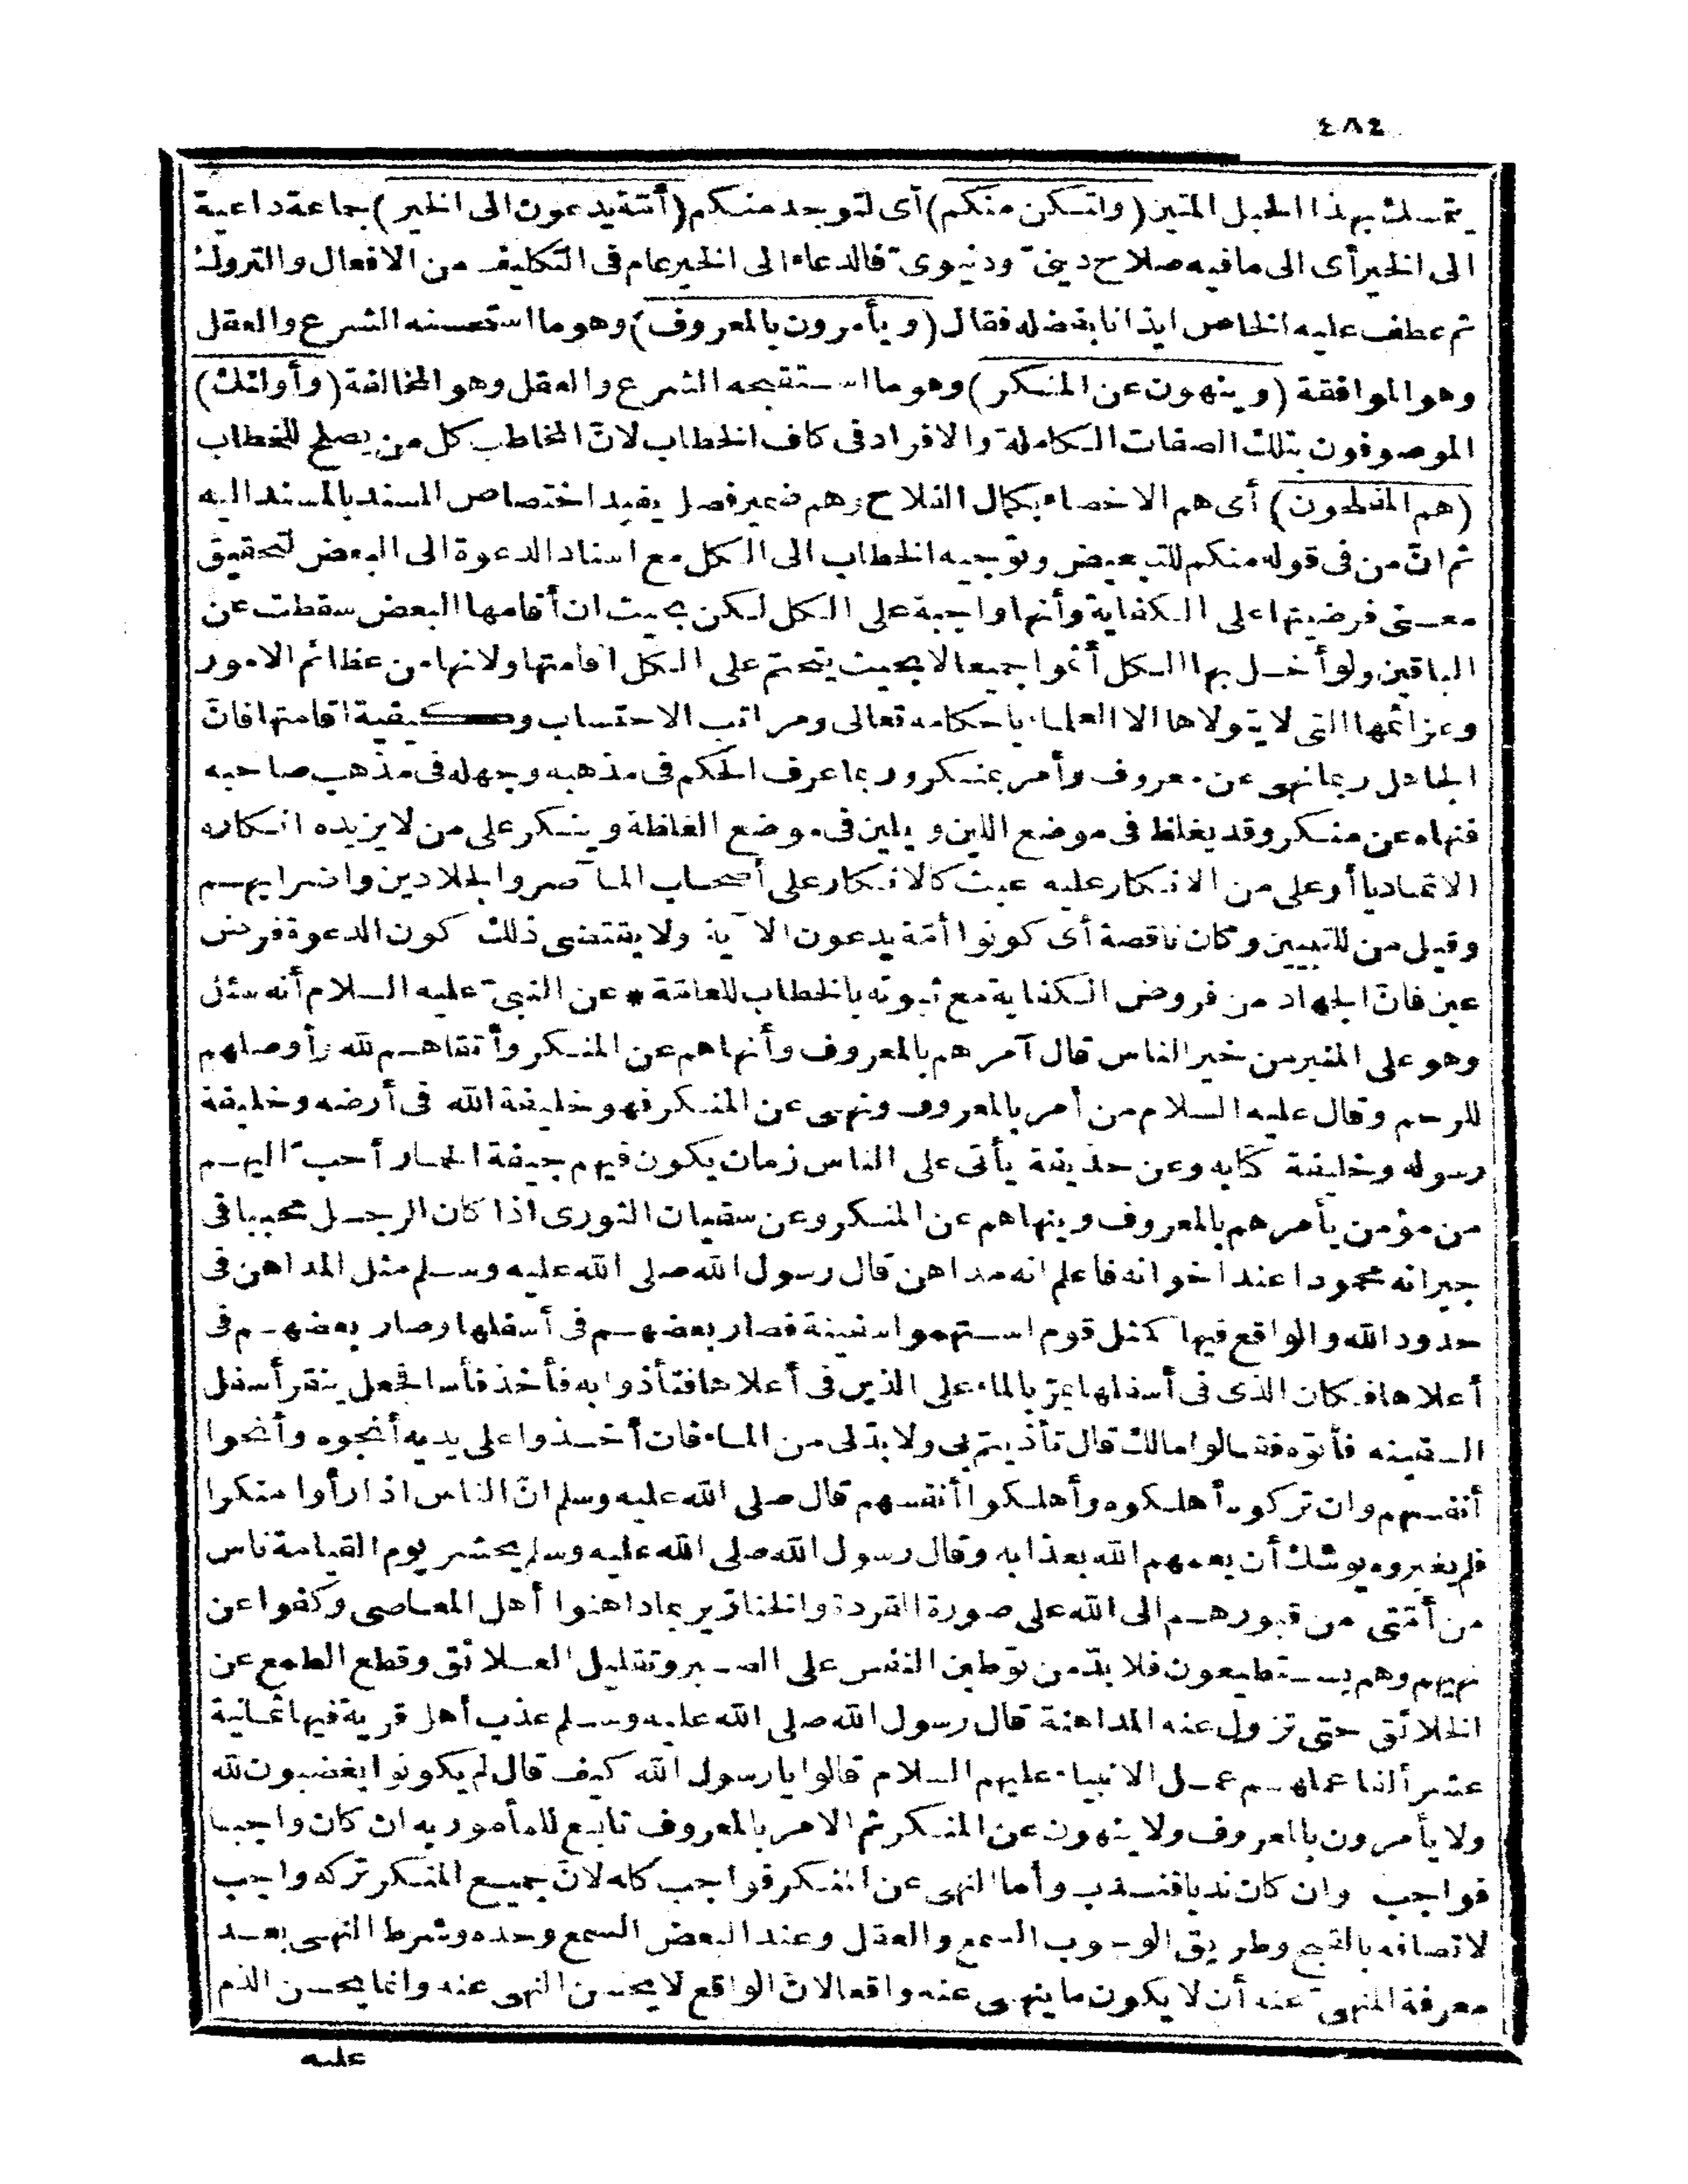 ٤٨٤
يتمسك بهذا الحبل المتين (ولتكن منكم) أى لتوجد منكم (أمّة يدعون الى الخير) جماعة داعية
الى الخير أى الى ما فيه صلاح دينىّ ودنيوىّ فالدعاء الى الخير عام فى التكليف من الافعال والتروك
ثم عطف عليه الخاص ايذانا بفضله فقال (ويأمرون بالمعروف) وهو ما استحسنه الشرع والعقل
وهو الموافقة (وينهون عن المنكر) وهو ما استقبحه الشرع والعقل وهو المخالفة (وأولئك)
الموصوفون بتلك الصفات الكاملة والافراد فى كاف الخطاب لانّ المخاطب كل من يصلح للخطاب
(هم المفلحون) أى هم الاخصاء بكمال الفلاح وهم ضمير فصل يفيد اختصاص المسند بالمسند اليه
ثم انّ من فى قوله منكم للتبعيض وتوجيه الخطاب الى الكل مع اسناد الدعوة الى البعض لتحقيق
معنى فرضيتها على الكفاية وأنها واجبة على الكل لكن بحيث ان أقامها البعض سقطت عن
الباقين ولو أخل بها الكل أثموا جميعا لا بحيث يتحتم على الكل اقامتها ولانها من عظائم الامور
وعزائمها التى لا يتولاها الا العلماء باحكامه تعالى ومراتب الاحتساب وكيفية اقامتها فانّ
الجاهل ربما نهى عن معروف وأمر بمنكر وربما عرف الحكم فى مذهبه وجهله فى مذهب صاحبه
فنهاه عن منكر وقد يغلظ فى موضع اللين ويلين فى موضع الغلظة وينكر على من لا يزيده انكاره
الا تماديا أو على من الانكار عليه عبث كالانكار على أصحاب المآصر والجلادين واضرابهم
وقيل من للتبيين وكان ناقصة أى كونوا أمّة يدعون الآية ولا يقتضى ذلك كون الدعوة فرض
عين فانّ الجهاد من فروض الكفاية مع ثبوته بالخطاب للعامّة * عن النبىّ عليه السلام أنه سئل
وهو على المنبر من خير الناس قال آمرهم بالمعروف وأنهاهم عن المنكر وأتقاهم لله وأوصلهم
للرحم وقال عليه السلام من أمر بالمعروف ونهى عن المنكر فهو خليفة الله فى أرضه وخليفة
رسوله وخليفة كتابه وعن حذيفة يأتى على الناس زمان يكون فيهم جيفة الحمار أحبّ اليهم
من مؤمن يأمرهم بالمعروف وينهاهم عن المنكر وعن سفيان الثورى اذا كان الرجل محببا فى
جيرانه محمودا عند اخوانه فاعلم انه مداهن قال رسول الله صلى الله عليه وسلم مثل المداهن فى
حدود الله والواقع فيها كمثل قوم استهموا سفينة فصار بعضهم فى أسفلها وصار بعضهم فى
أعلاها فكان الذى فى أسفلها يمرّ بالماء على الذين فى أعلاها فتأذوا به فأخذ فأسا فجعل ينقر أسفل
السفينه فأتوه فقالوا مالك قال تأذيتم بى ولا بدّ لى من الماء فان أخذوا على يديه أنجوه وأنجوا
أنفسهم وان تركوه أهلكوه وأهلكوا أنفسهم قال صلى الله عليه وسلم انّ الناس اذا رأوا منكرا
فلم يغيروه يوشك أن يعمهم الله بعذابه وقال رسول الله صلى الله عليه وسلم يحشر يوم القيامة ناس
من أمّتى من قبورهم الى الله على صورة القردة والخنازير بما داهنوا أهل المعاصى وكفوا عن
نهيهم وهم يستطيعون فلا بدّ من توطين النفس على الصبر وتقليل العلائق وقطع الطمع عن
الخلائق حتى تزول عنه المداهنة قال رسول الله صلى الله عليه وسلم عذب أهل قرية فيها ثمانية
عشر ألفا عملهم عمل الانبياء عليهم السلام قالوا يا رسول الله كيف قال لم يكونوا يغضبون لله
ولا يأمرون بالمعروف ولا ينهون عن المنكر ثم الامر بالمعروف تابع للمأمور به ان كان واجبا
فواجب وان كان ندبا فندب وأما النهى عن المنكر فواجب كله لانّ جميع المنكر تركه واجب
لاتصافه بالقبح وطريق الوجوب السمع والعقل وعند البعض السمع وحده وشرط النهى بعد
معرفة المنهىّ عنه أن لا يكون ما ينهى عنه واقعا لانّ الواقع لا يحسن النهى عنه وانما يحسن الذم
عليه